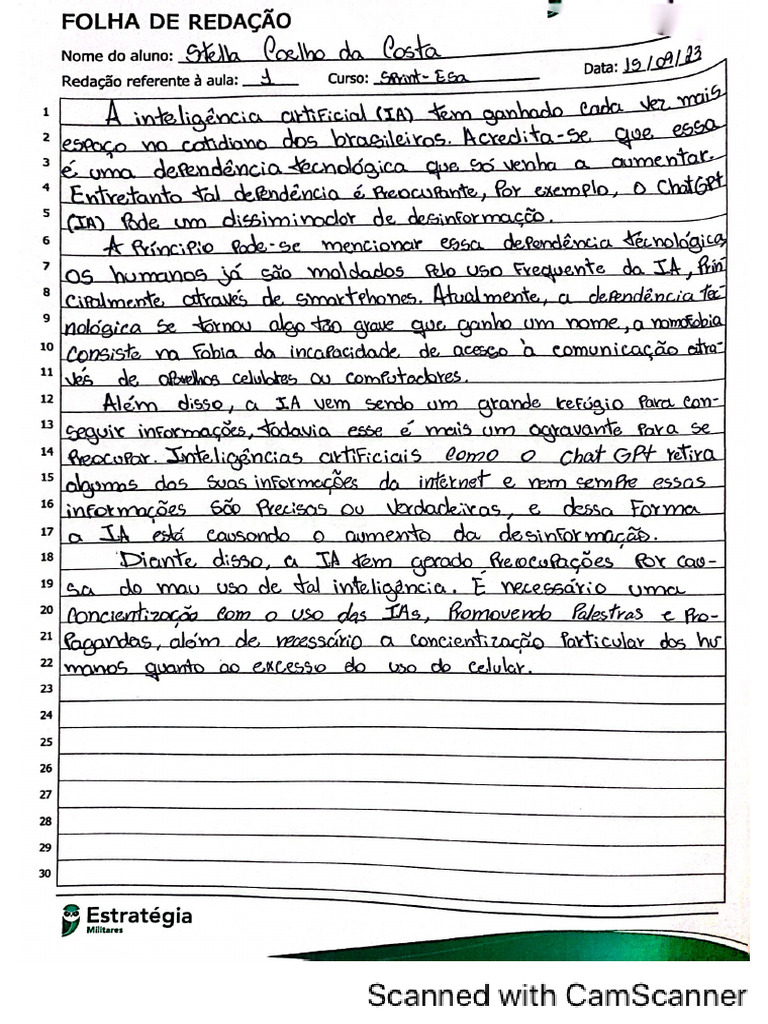 FOLHA DE REDAÇÃO
Nome do aluno: Stella Coelho da Costa
Data: 19/09/23
Redação referente à aula: 1 Curso: Sprint-ESA
1 A inteligência artificial (IA) tem ganhado cada vez mais
2 espaço no cotidiano dos brasileiros. Acredita-se que essa
3 é uma dependência tecnológica que só venha a aumentar.
4 Entretanto tal dependência é preocupante, por exemplo, o ChatGPt
5 (IA) pode um dissiminador de desinformação.
6 A príncipio pode-se mencionar essa dependência tecnológica
7 os humanos já são moldados pelo uso frequente da IA, prin
8 cipalmente através de smartphones. Atualmente, a dependência tec
9 nológica se tornou algo tão grave que ganho um nome, a nomofobia
10 consiste na fobia da incapacidade de acesso à comunicação atra-
11 vés de aparelhos celulares ou computadores.
12 Além disso, a IA vem sendo um grande refúgio para con-
13 seguir informações, todavia esse é mais um agravante para se
14 preocupar. Inteligências artificiais como o chat GPt retira
15 algumas das suas informações da internet e nem sempre essas
16 informações são precisas ou verdadeiras, e dessa forma
17 a IA está causando o aumento da desinformação.
18 Diante disso, a IA tem gerado preocupações por cau-
19 sa do mau uso de tal inteligência. É necessário uma
20 concientização com o uso das IAs, promovendo palestras e pro-
21 pagandas, além de necessário a concientização particular dos hu
22 manos quanto ao excesso do uso do celular.
23
24
25
26
27
28
29
30
Estratégia
Militares
Scanned with CamScanner